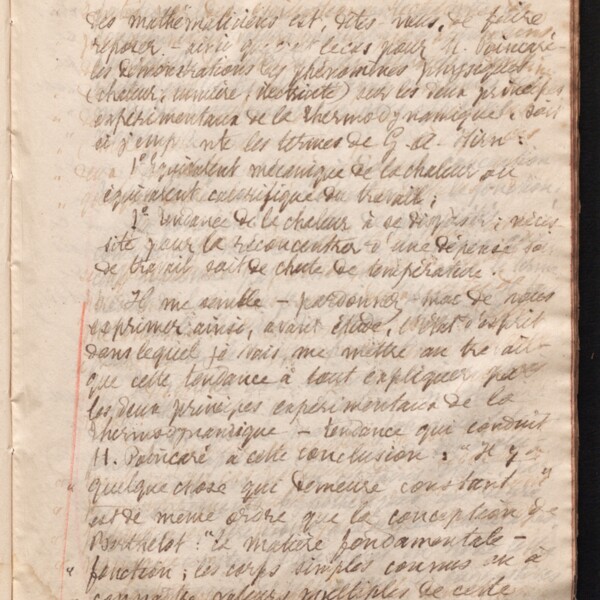 des mathématiciens est, dites-vous, de faire
reposer – ainsi que c'est le cas pour M. Poincaré –
les démonstrations des phénomènes physiques
(chaleur, lumière, électricité) sur les deux principes
expérimentaux de la thermodynamique, soit
si j'emprunte les termes de G-A-Hirn:
1º Équivalent mécanique de la chaleur ou
équivalent calorifique du travail;
1º Tendance de la chaleur à se dissiper; néces-
sité pour la reconcentrer d'une dépense soit
de travail soit de chute de température.
Il me semble – pardonnez-moi de vous
exprimer ainsi, avant étude, l'état d'esprit
dans lequel je vais me mettre au travail –
que cette tendance à tout expliquer par
les deux principes expérimentaux de la
thermodynamique – tendance qui conduit
M. Poincaré à cette conclusion: "Il y a
"quelque chose qui demeure constant"
est de même ordre que la conception de
Berthelot: "la matière fondamentale –
"fonction; les corps simples connus ou à
connaître valeurs multiples de cette